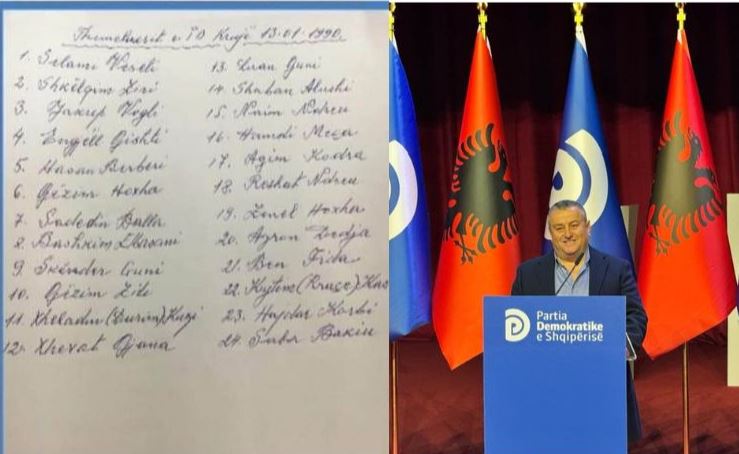 Themeluesit e PD Krujë 13.01.1990.
1. Selami Veseli
2. Shkëlqim Ziri
3. Jakup Vogli
4. Engjëll Gishti
5. Hasan Berberi
6. Gëzim Hoxha
7. Sadedin Balla
8. Bashkim Elbasani
9. Skënder Guni
10. Gëzim Zili
11. Xheladin (Durim) Kuqi
12. Xhevat Gjana
13. Luan Guni
14. Shaban Alushi
15. Naim Ndreu
16. Hamdi Meça
17. Agim Kodra
18. Reshat Ndreu
19. Zenel Hoxha
20. Agron
21. Ben Frida
22.
23. Hajdar Koshi
24. Sabri Bakiu
Partia
Demokratike
e Shqipërisë